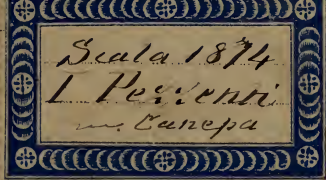 Scala 1874
I Pezzenti
m. Canepa